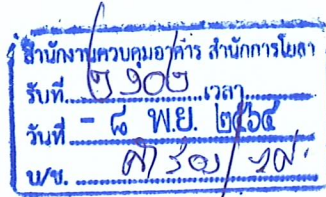 สำนักงานควบคุมอาคาร สำนักการโยธา
รับที่ ๒๑๐๒ เวลา
วันที่ - ๘ พ.ย. ๒๕๖๔
บ/ช.